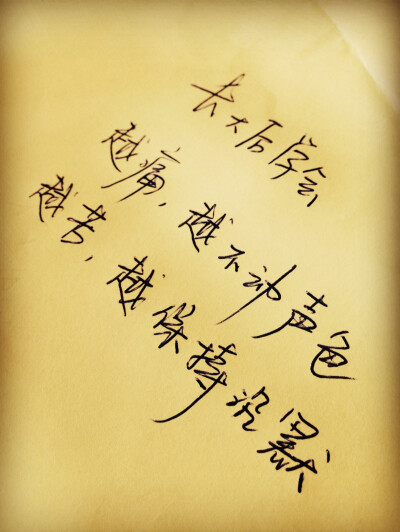 长大后学会
越痛，越不动声色
越苦，越保持沉默